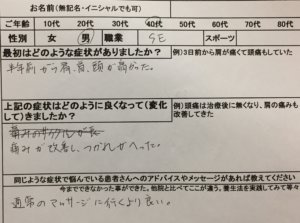 お名前(無記名・イニシャルでも可)
ご年齢 10代 20代 30代 40代 50代 60代 70代
性別 女 男 職業 SE スポーツ
最初はどのような症状がありましたか? 例)3日前から肩が痛くて頭痛もしていた
半年前から肩、首、頭が痛かった。
上記の症状はどのように良くなって(変化して)きましたか? 例)頭痛は治療後に無くなり、肩の痛みも改善してきた
痛みのサイクルが長
痛みが改善し、つかれがへった。
同じような症状で悩んでいる患者さんへのアドバイスやメッセージがあれば教えてください
今までできなかった事ができた。他院と比べてここが違う。養生法を実践してみて等々
通常のマッサージに行くより良い。